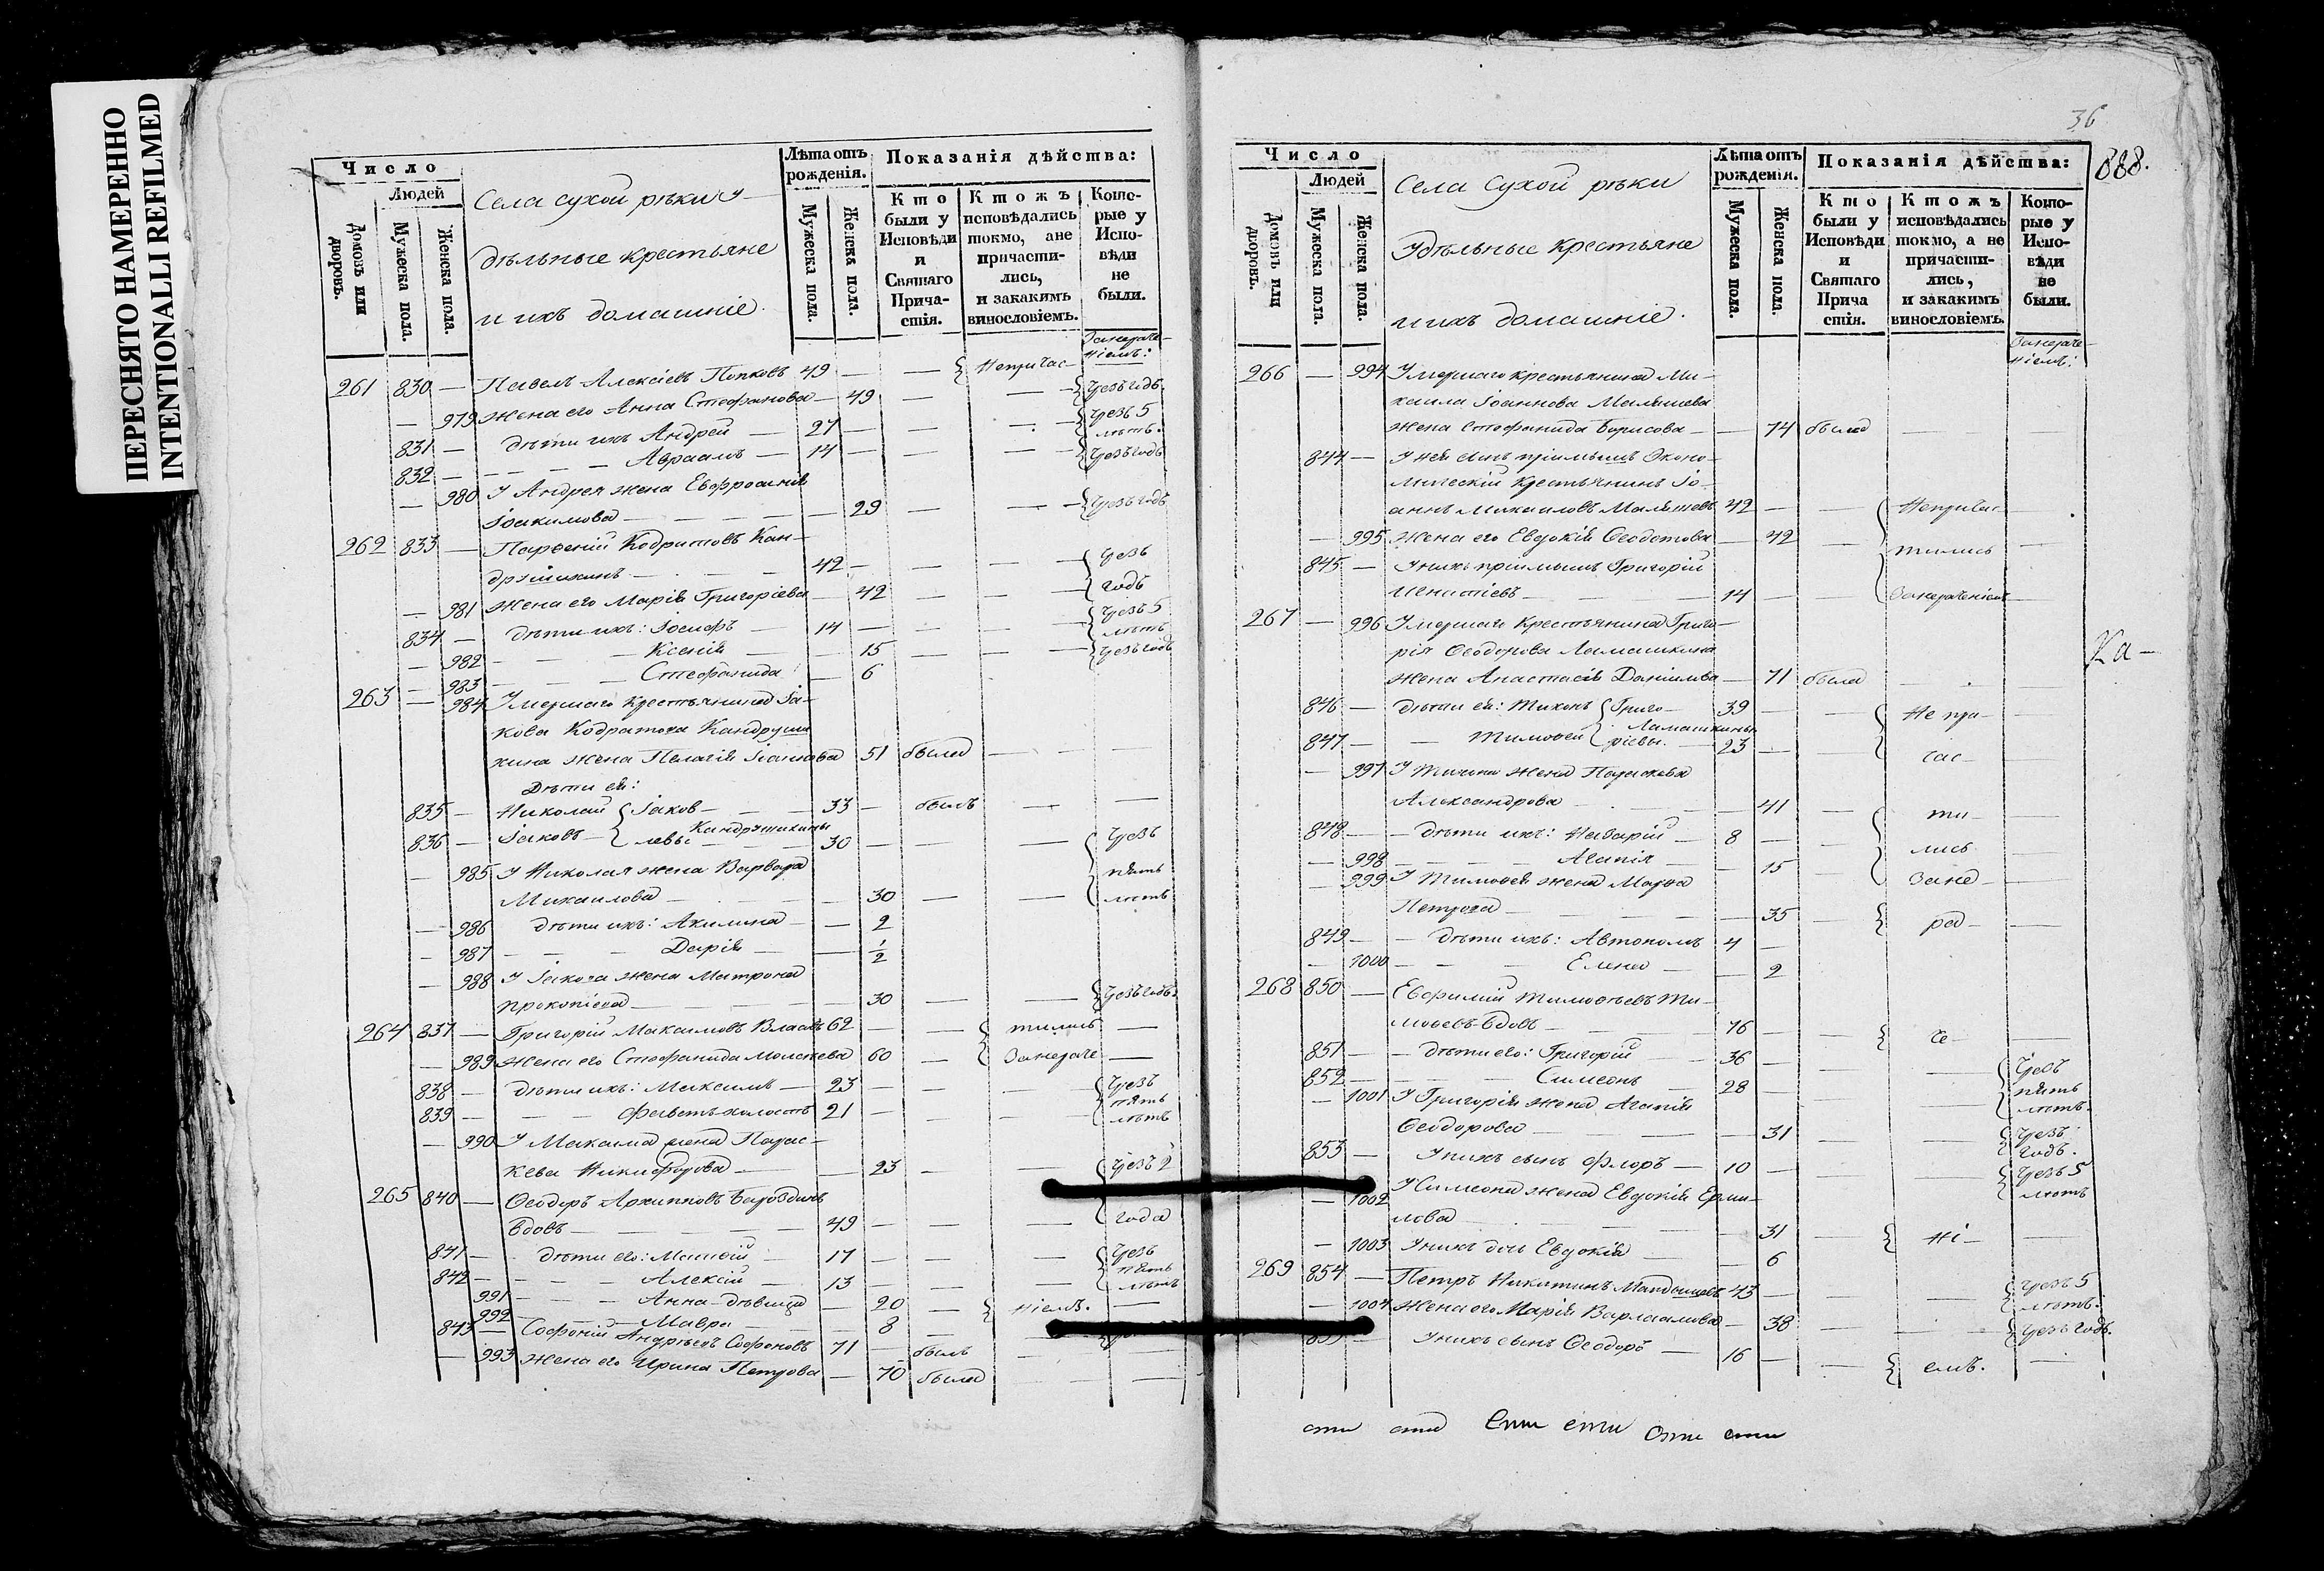 ПЕРЕСНЯТО НАМЕРЕННО
INTENTIONALLI REFILMED
Число
Людей
Домовъ или дворовъ.
Мужеска пола.
Женска пола.
Села сухой рѣки у-
дѣльные крестьяне
и ихъ домашніе.
Лѣта отъ рожденія.
Мужеска пола.
Женска пола.
Показанія дѣйства:
Кто были у Исповѣди и Святаго Причастія.
Ктожъ исповѣдались токмо, а не причастились, и закакимъ винословіемъ.
Которые у Исповѣди не были.
Занераче-
ніемъ:
261 830 — Павелъ Алексіевъ Попковъ 49 — — Непричас-
— 979 жена его Анна Стефанова — 49 — — чрезъ годъ.
831 — дѣти ихъ Андрей — 27 — — — чрезъ 5 лѣтъ.
832 — — — Авраамъ — 14 — — — чрезъ годъ
— 980 У Андрея жена Евфросинія
Іоакимова — — — 29 — — чрезъ годъ
262 833 — Парѳеній Кодратовъ Кан-
друшихинъ — — 42 — — — чрезъ
— 981 жена его Марія Григоріева — 42 — — годъ
834 — дѣти ихъ: Іосифъ — 14 — — — чрезъ 5 лѣтъ
— 982 — — Ксенія — — 15 — — чрезъ годъ
— 983 — — Стефанида — 6
263 — 984 Умершаго крестьянина Іа-
кова Кодратова Кандруши
хина жена Пелагія Іоаннова 51 была — — —
Дѣти ея:
835 — Николай { Іаков — — 33 — былъ — —
836 — Іаковъ — { левы Кандрушихины 30 — — — чрезъ
— 985 У Николая жена Варвара пять
Михаилова — — — 30 — — лѣтъ
— 986 дѣти ихъ: Акилина — — 2
— 987 — — Дарія — — 1/2
— 988 У Іакова жена Матрона
Прокопіева — — — 30 — — чрезъ годъ.
264 837 — Григорій Максимовъ Власовъ 62 — — тились —
— 989 жена его Стефанида Моисеева 60 — Занераче —
838 — дѣти ихъ: Максимъ — 23 — — — чрезъ
839 — — — холостъ 21 — — пять лѣтъ
— 990 У Максима жена Парас-
кева Никифорова — — 23 — — чрезъ 2
265 840 — Ѳеодоръ Архиповъ
вдовъ — — — 49 — — — года
841 — дѣти его: — 17 — — — чрезъ
842 — — — Алексій — 13 — — — пять лѣтъ
991 — — — Анна дѣвица — 20 — ніемъ. —
992 — — Мавра — — 8
843 — Софоній Андреевъ Софоновъ 71 — былъ — —
— 993 жена его Ирина Петрова — 70 была — —
36
888.
Число
Людей
Домовъ или дворовъ.
Мужеска пола.
Женска пола.
Села Сухой рѣки
Удѣльные крестьяне
и ихъ домашніе.
Лѣта отъ рожденія.
Мужеска пола.
Женска пола.
Показанія дѣйства:
Кто были у Исповѣди и Святаго Причастія.
Ктожъ исповѣдались токмо, а не причастились, и закакимъ винословіемъ.
Которые у Исповѣди не были.
Занераче-
ніемъ:
266 — 994 Умершаго крестьянина Ми-
хаила Іоаннова Малышева
жена Стефанида Борисова — — 74 была —
844 — У нея сынъ пріимышъ Эконо-
мическій крестьянинъ Іо-
аннъ Михаиловъ Малышевъ 42 — — Непричас-
— 995 жена его Евдокія Ѳеодотова — 42 — тились —
845 — У нихъ пріимышъ Григорій
Игнатіевъ — — — 14 — — Занераченіемъ —
267 — 996 Умершаго крестьянина Григо-
рія Ѳеодорова Ламашкина
жена Анастасія Даніилова — 71 была — —
Ка-
846 — дѣти ея: Тихонъ { Григо- 39 — — Не при- —
847 — — Тимоѳей { ріевы. Ламашкины 23 — час- —
— 997 У Тихона жена Параскева
Александрова — — — 41 — ти- —
848 — — дѣти ихъ: Назарій — 8 — — лись —
— 998 — — — Агапія — — 15 — Зане —
— 999 У Тимоѳея жена Марѳа
Петрова — — — 35 — рад- —
849 — — дѣти ихъ: Автономъ 4 —
— 1000 — — Елена — — 2
268 850 — Евфимій Тимоѳеевъ Ти-
моѳеевъ вдовъ — — 76 — — че- —
851 — — дѣти его: Григорій 36 — — — чрезъ
852 — — — Симеонъ 28 — — — пять лѣтъ.
— 1001 У Григорія жена Агапія
Ѳеодорова — — — 31 — — чрезъ годъ.
853 — У нихъ сынъ Флоръ — 10 — — — чрезъ 5 лѣтъ
— 1002 У Симеона жена Евдокія Ерми-
лова — — — 31 — ні- —
— 1003 У нихъ дочь Евдокія — 6
269 854 — Петръ Никитинъ 43 — — — чрезъ 5 лѣтъ.
— 1004 жена его Марія Варлаамова — 38 — — чрезъ годъ.
855 — У нихъ сынъ Ѳеодоръ — 16 — — емъ. —